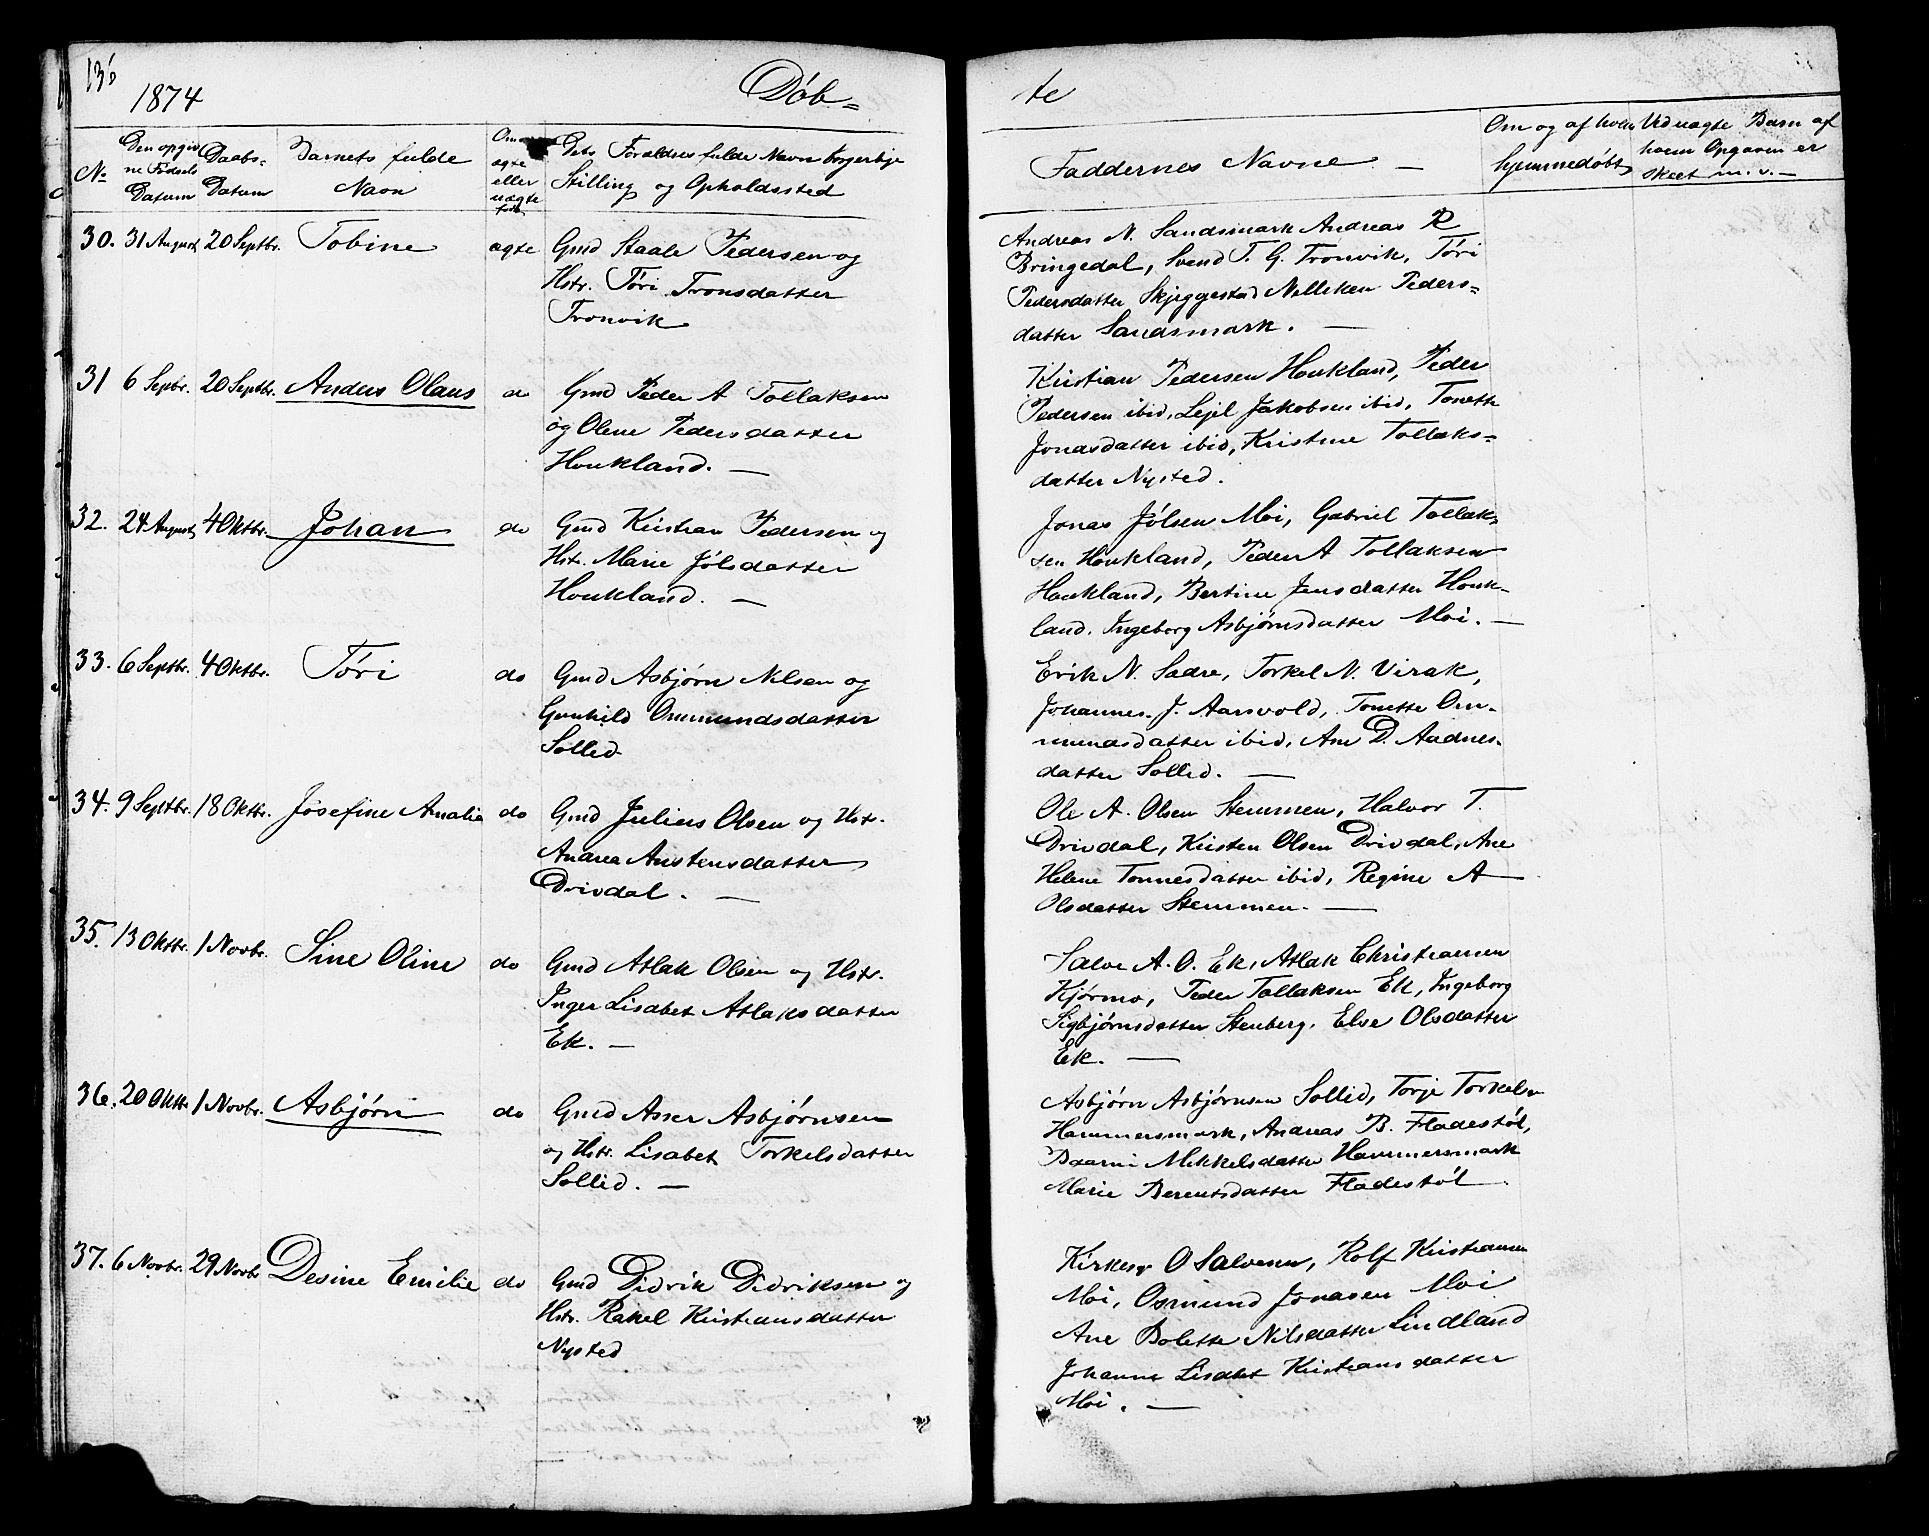 136
1874
Döb=
te
No
Den opgivne Fødsels Datum
Daabs= Datum
Barnets fulde Navn
Om ægte eller uægte født
Dets Forældres fulde Navn borgerlige Stilling og Opholdssted
Faddernes Navne —
Om og af hvem hjemmedøbt
Ved uægte Barn af hvem Opgaven er skeet m. v. —
30. 31 August 20 Septbr. Tobine ægte Gmd Staale Pedersen og
Hstr. Töri Tronsdatter
Tronvik
Andreas N. Sandsmark Andreas R
Bringedal, Svend T. G. Tronvik, Töri
Pedersdatter Skjeggestad Nilleken Peders=
datter Sandsmark. —
31 6 Septbr. 20 Septbr. Anders Olaus do Gmd Peder A Tollaksen
og Olene Pedersdatter
Houkland. —
Kristian Pedersen Houkland, Peder
Pedersen ibid, Lejel Jakobsen ibid, Tonette
Jonasdatter ibid, Kristine Tollaks=
datter Nysted.
32. 24 August 4 Oktbr. Johan do Gmd Kristian Pedersen og
Hstr. Marie Jölsdatter
Houkland. —
Jonas Jölsen Moi, Gabriel Tollak-
sen Houkland, Peder A Tollaksen
Houkland, Bertine Jensdatter Houk-
land. Ingeborg Asbjörnsdatter Moi. —
33. 6 Septbr. 4 Oktbr. Töri do Gmd Asbjörn Nilsen og
Gunhild Ommundsdatter
Sollid
Erik N. Sadre, Torkel N. Virak,
Johannes J. Aarsvold, Tonette Om-
mundsdatter ibid, Ane D. Audnes-
datter Sollid. —
34. 9 Septbr. 18 Oktbr. Josefine Amalie do Gmd Julius Olsen og Hstr.
Andrea Austensdatter
Drivdal. —
Ole A. Olsen Stemmen, Halvor T.
Drivdal, Kristen Olsen Drivdal, Ane
Helene Tonnesdatter ibid, Regine A
Olsdatter Stemmen. —
35. 13 Oktbr. 1 Novbr. Sine Oline do Gmd Atlak Olsen og Hstr.
Inger Lisabet Atlaksdatter
Ek. —
Salve A. O. Ek, Atlak Christiansen
Kjörmo, Peder Tollaksen Ek, Ingeborg
Sigbjörnsdatter Stenberg. Else Olsdatter
Ek. —
36. 20 Oktbr 1 Novbr. Asbjörn do Gmd Asser Asbjörnsen
og Hstr. Lisabet Torkelsdatter
Sollid. —
Asbjörn Asbjörnsen Sollid, Torje Torkelsen
Hammersmark, Andreas B. Fladestöl,
Baarni Mikkelsdatter Hammersmark
Marie Berentsdatter Fladestöl.
37. 6 Novbr. 29 Novbr Desine Emilie do Gmd Didrik Didriksen og
Hstr. Rakel Kristiansdatter
Nysted
Kirkesg O Salvesen, Rolf Kristiansen
Moi, Osmund Jonasen Moi
Ane Bolette Nilsdatter Lindland
Johanne Lisabet Kristiansdatter
Moi. —